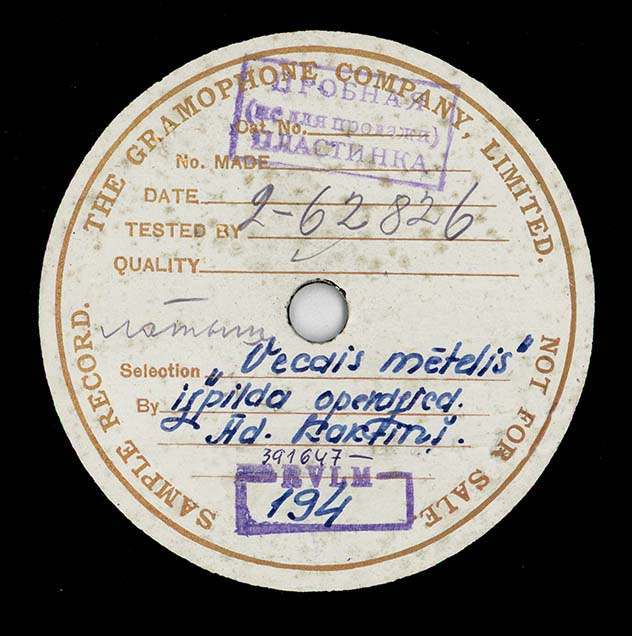 THE GRAMOPHONE COMPANY, LIMITED.
ПРОБНАЯ
(не для продажи)
ПЛАСТИНКА
Cat. No.
No. MADE
DATE
2-62826
TESTED BY
QUALITY
Selection „Vecais mētelis"
By izpilda
Ad. Kaktiņš.
391647-
RVLM
194
SAMPLE RECORD. NOT FOR SALE